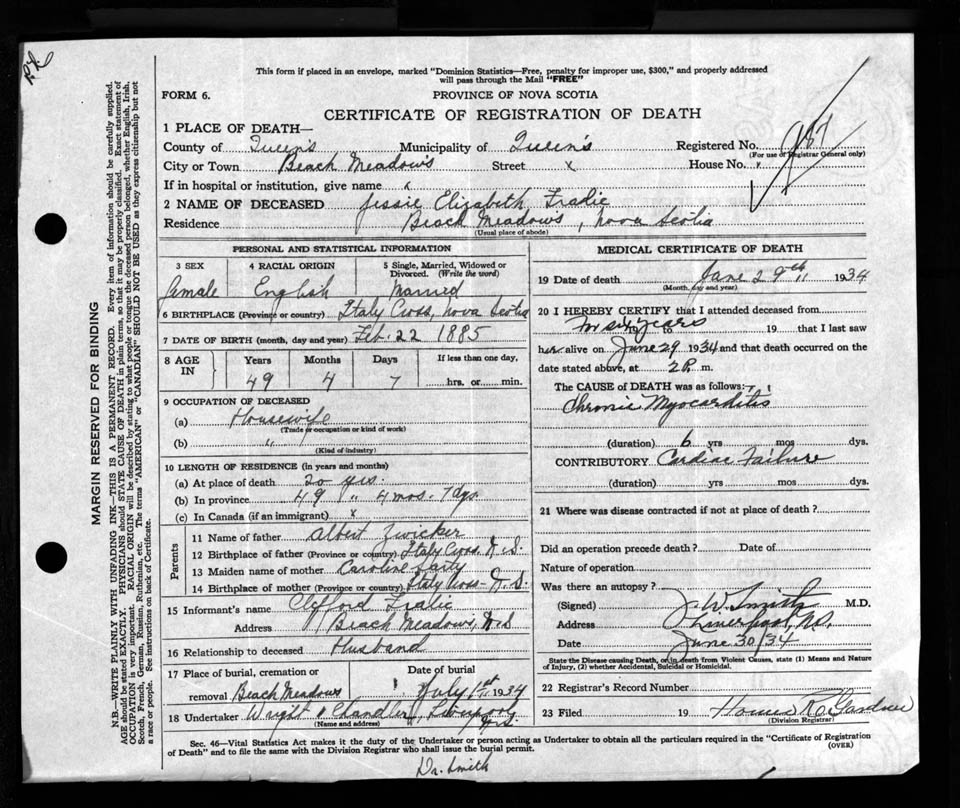 P.L.
This form if placed in an envelope, marked "Dominion Statistics—Free, penalty for improper use, $300," and properly addressed
will pass through the Mail "FREE"
FORM 6.
PROVINCE OF NOVA SCOTIA
CERTIFICATE OF REGISTRATION OF DEATH
1 PLACE OF DEATH—
County of Queen's Municipality of Queen's Registered No. 987
(For use of Registrar General only)
City or Town Beach Meadows Street x House No. x
If in hospital or institution, give name x
2 NAME OF DECEASED Jessie Elizabeth Fralic
Residence Beach Meadows, Nova Scotia
(Usual place of abode)
PERSONAL AND STATISTICAL INFORMATION
3 SEX 4 RACIAL ORIGIN 5 Single, Married, Widowed or
Divorced. (Write the word)
female English Married
6 BIRTHPLACE (Province or country) Italy Cross, Nova Scotia
7 DATE OF BIRTH (month, day and year) Feb. 22 1885
8 AGE IN Years Months Days If less than one day,
49 4 7 hrs. or min.
9 OCCUPATION OF DECEASED
(a) Housewife
(Trade or occupation or kind of work)
(b) "
(Kind of industry)
10 LENGTH OF RESIDENCE (in years and months)
(a) At place of death 20 yrs.
(b) In province 49 " 4 mos. 7 dys.
(c) In Canada (if an immigrant) x
Parents
11 Name of father Albert Zwicker
12 Birthplace of father (Province or country) Italy Cross, N.S.
13 Maiden name of mother Caroline
14 Birthplace of mother (Province or country) Italy Cross - N.S.
15 Informant's name Clifford Fralic
Address Beach Meadows, N.S
16 Relationship to deceased Husband
17 Place of burial, cremation or Date of burial
removal Beach Meadows July 1st 1934
18 Undertaker Wright & Chandler, Liverpool,
N.S.
(Name and address)
MEDICAL CERTIFICATE OF DEATH
19 Date of death June 29th 1934
(Month, day and year)
20 I HEREBY CERTIFY that I attended deceased from
for six years 19 that I last saw
her alive on June 29 1934 and that death occurred on the
date stated above, at 2 P. m.
The CAUSE OF DEATH was as follows:
Chronic Myocarditis
(duration) 6 yrs mos dys.
CONTRIBUTORY Cardiac Failure
(duration) yrs. mos. dys.
21 Where was disease contracted if not at place of death?
Did an operation precede death? Date of
Nature of operation
Was there an autopsy?
(Signed) J. W. Smith M.D.
Address Liverpool, N.S.
Date June 30/34
State the Disease causing Death, or, in death from Violent Causes, state (1) Means and Nature
of Injury, (2) whether Accidental, Suicidal or Homicidal.
22 Registrar's Record Number
23 Filed 19 Homer R. Gardner
(Division Registrar)
Sec. 46—Vital Statistics Act makes it the duty of the Undertaker or person acting as Undertaker to obtain all the particulars required in the "Certificate of Registration
of Death" and to file the same with the Division Registrar who shall issue the burial permit.
(OVER)
Dr. Smith
MARGIN RESERVED FOR BINDING
N.B.—WRITE PLAINLY WITH UNFADING INK—THIS IS A PERMANENT RECORD. Every item of information should be carefully supplied.
AGE should be stated EXACTLY. PHYSICIANS should STATE CAUSE OF DEATH in plain terms, so that it may be properly classified. Exact statement of
OCCUPATION is very important. RACIAL ORIGIN will be described by stating to what people or tongue the deceased person belonged, whether English, Irish,
Scotch, French, German, Russian, Ruthenian, etc. The terms "AMERICAN" or "CANADIAN" SHOULD NOT BE USED as they express citizenship but not
a race or people. See instructions on back of Certificate.